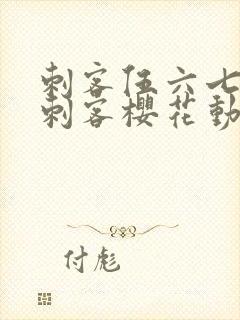 刺客伍六七
刺客櫻花動
付彪